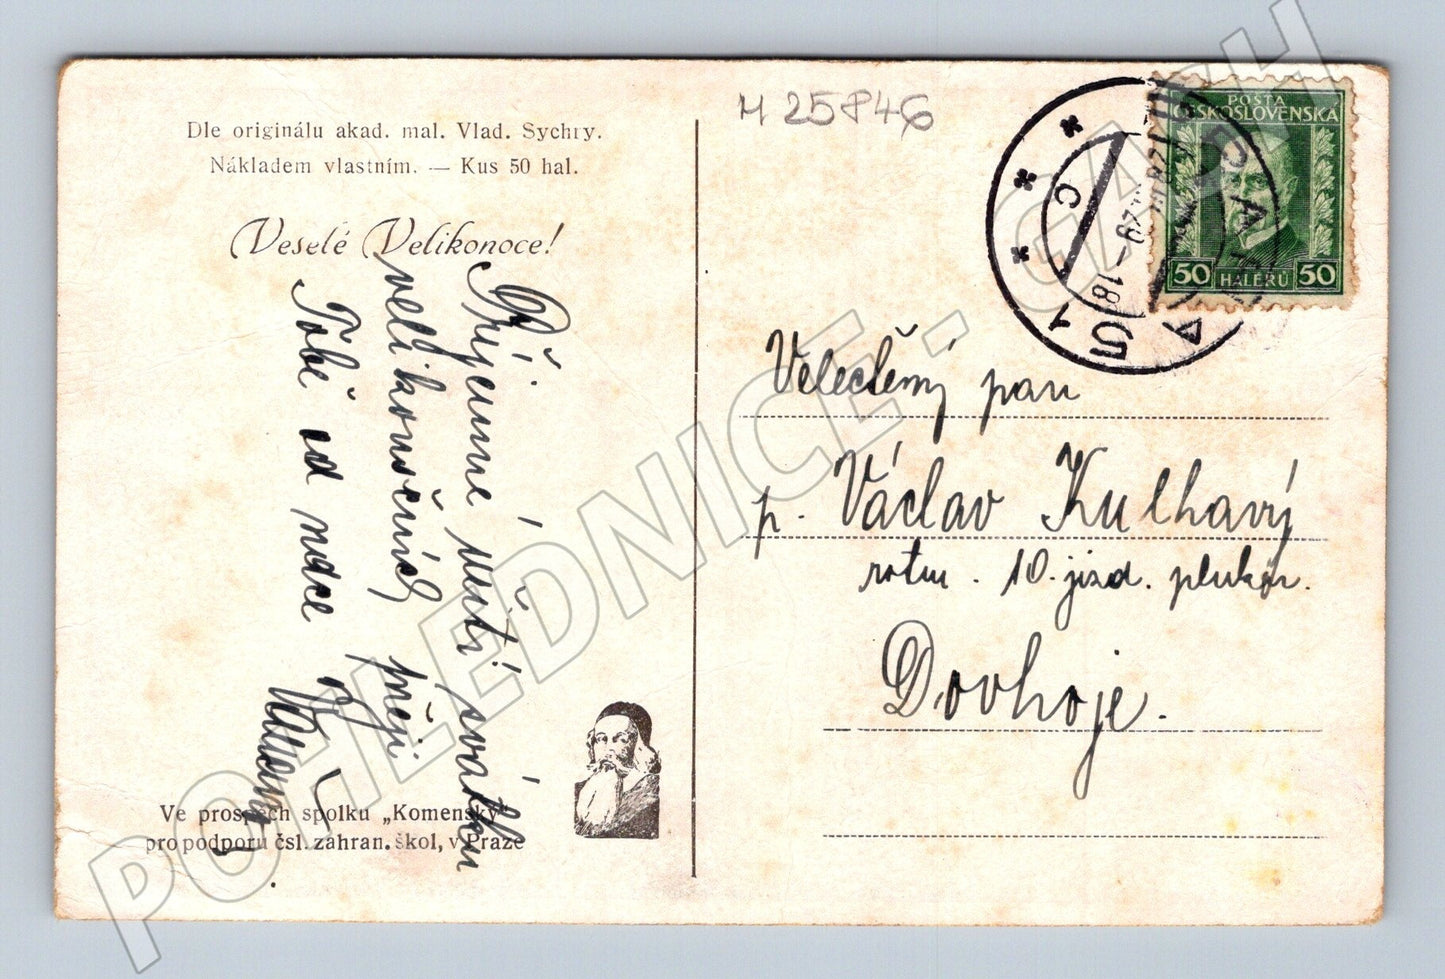 Dle originálu akad. mal. Vlad. Sychry.
Nákladem vlastním. — Kus 50 hal.
Veselé Velikonoce!
Příjemné svátků
velikonočních přeji
Tobě od srdce
Ve prospěch spolku „Komenský“
pro podporu čsl. zahran. škol, v Praze
M 25846
POŠTA
ČESKOSLOVENSKÁ
50 HALÉŘŮ 50
Velectěný pan
p. Václav Kulhavý
rotm. 10. jízd. pluku
Dovhoje.
POHLEDNICE - CASH